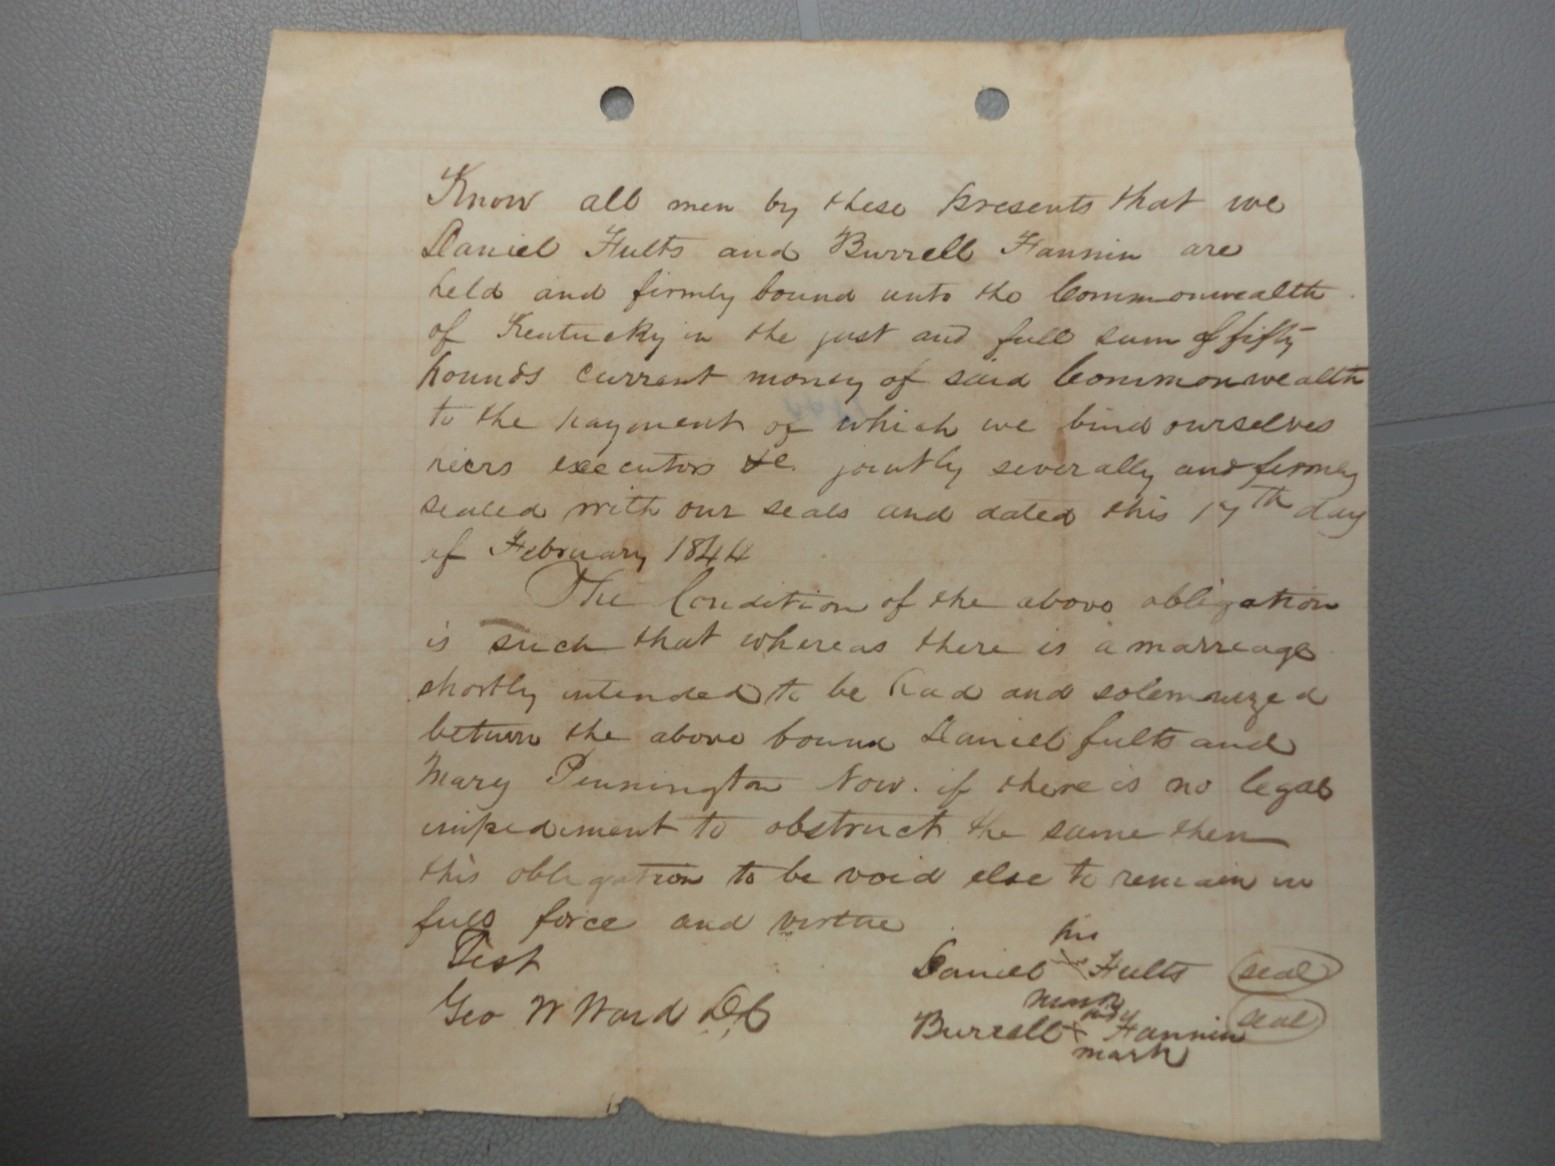 Know all men by these presents that we
Daniel Fults and Burrell Fannin are
held and firmly bound unto the Commonwealth
of Kentucky in the just and full sum of fifty
pounds current money of said Commonwealth
to the payment of which we bind ourselves
heirs executors &c. jointly severally and firmly
sealed with our seals and dated this 17th day
of February 1844
The Condition of the above obligation
is such that whereas there is a marreage
shortly intended to be had and solemnized
between the above bound Daniel fults and
Mary Pennington Now. if there is no legal
impediment to obstruct the same then
this obligation to be void else to remain in
full force and virtue
Test
Geo W Ward D,C
his
Daniel x Fults seal
mark
his
Burrell x Fannin seal
mark